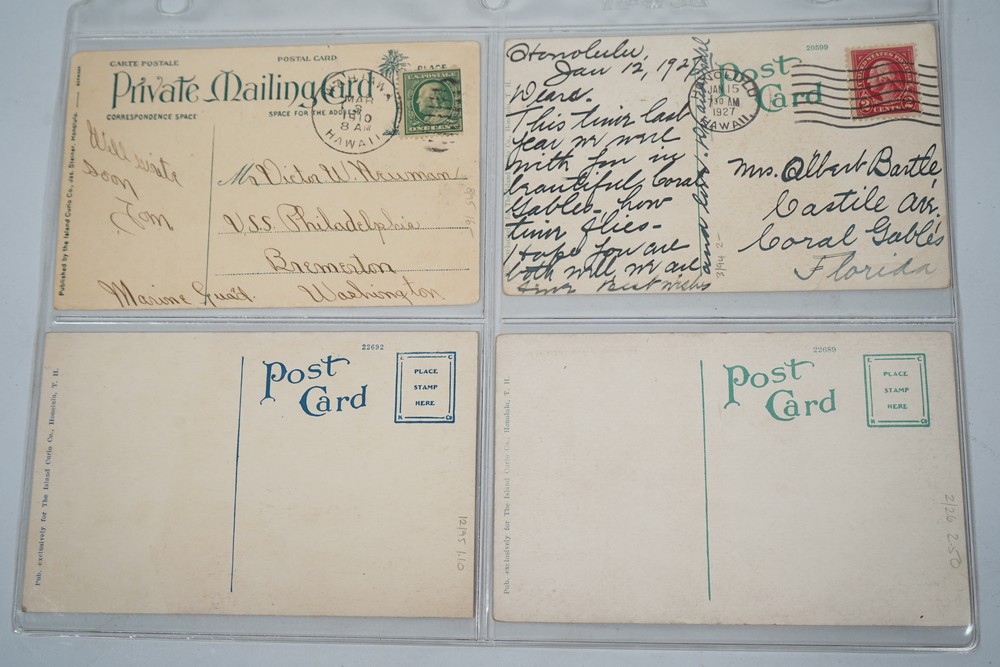 CARTE POSTALE
POSTAL CARD
Private Mailing Card
CORRESPONDENCE SPACE
SPACE FOR THE ADDRESS
PLACE
MAR
1910
8 AM
HAWAII
U.S. POSTAGE
ONE CENT
Will write
soon
Tom
Mr Victor W. Neuman
U.S.S. Philadelphia
Bremerton
Marine Guard. Washington
Published by the Island Curio Co., Jas. Steiner, Honolulu.
Honolulu,
Jan 12, 1927
Dears.
This time last
year we were
with you in
beautiful Coral
Gables. how
time flies-
Hope you are
both well, we are
fine Best wishes
and love.
3/94 2-
29899
Post
Card
HONOLULU
JAN 15
7 30 AM
1927
HAWAII.
2 CENTS 2
Mrs. Albert Bartle,
Castile Ave.
Coral Gables
Florida
Pub. exclusively for The Island Curio Co., Honolulu, T. H.
22692
Post
Card
PLACE
STAMP
HERE
12/95 1.10
Pub. exclusively for The Island Curio Co., Honolulu, T. H.
22689
Post
Card
PLACE
STAMP
HERE
2/26 2.50